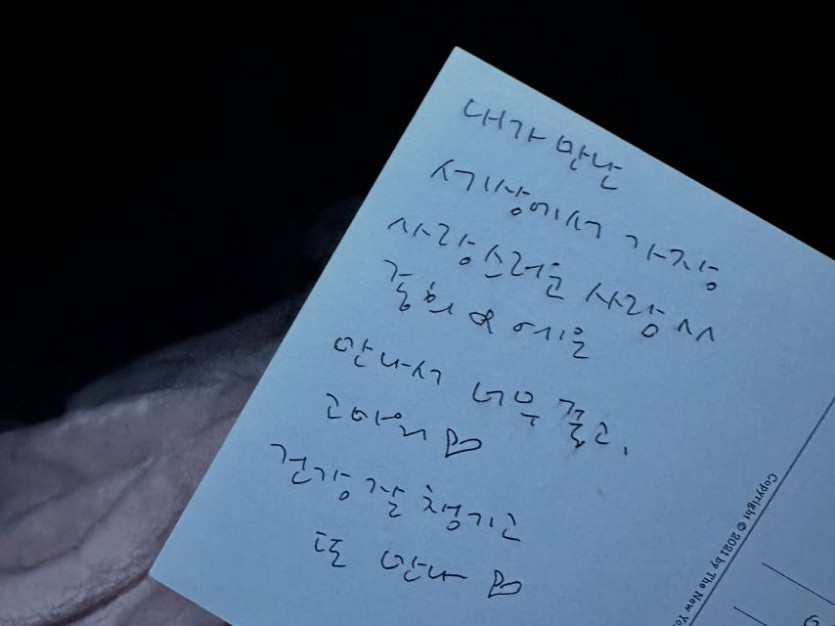 내가 만난
세상에서 가장
사랑스러운 사랑 ^^
중희 & 예은
만나서 너무 좋고,
고마워 ♡
건강 잘 챙기고
또 만나 ♡
Copyright © 2021 by The New Yo